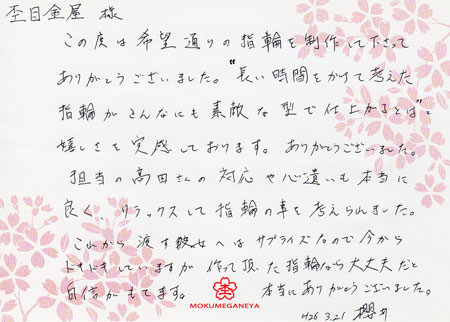 杢目金屋 様
この度は希望通りの指輪を制作して下さって
ありがとうございました。“長い時間をかけて考えた
指輪がこんなにも素敵な型で仕上がるとは”と
嬉しさを実感しております。ありがとうございました。
担当の高田さんの対応や心遣いも本当に
良く、リラックスして指輪の事を考えられました。
これから渡す彼女へはサプライズなので今から
ドキドキしていますが作って頂いた指輪なら大丈夫だと
自信がもてます。 本当にありがとうございました。
MOKUMEGANEYA
H26 3.21 櫻井